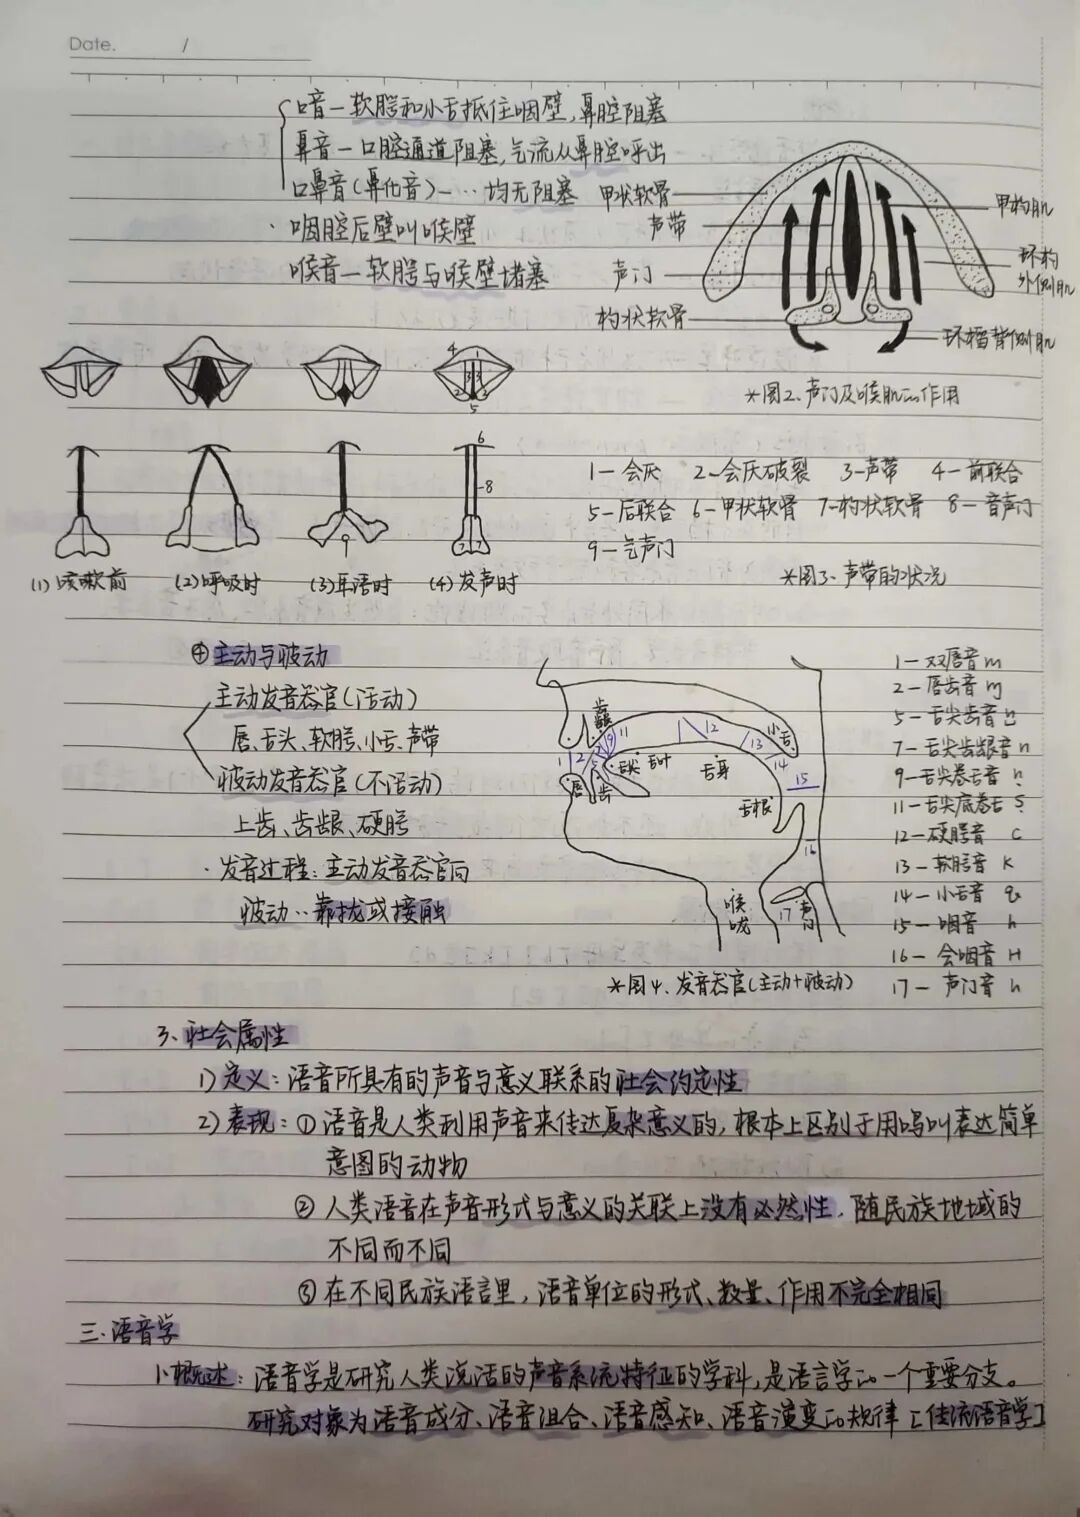 Date. /
口音一软腭和小舌抵住咽壁,鼻腔阻塞
鼻音一口腔通道阻塞,气流从鼻腔呼出
口鼻音(鼻化音)一…均无阻塞
·咽腔后壁叫喉壁
喉音一软腭与喉壁堵塞
甲状软骨
声带
声门
杓状软骨
甲杓肌
环杓
外侧肌
环榴背侧肌
*图2、声门及喉肌的作用
4 1
3 3
2 2
5
6
8
7 7
9
(1)咳嗽前 (2)呼吸时 (3)耳语时 (4)发声时
1一会厌 2一会厌破裂 3一声带 4一前联合
5一后联合 6一甲状软骨 7一杓状软骨 8一音声门
9一气声门
*图3、声带的状况
④主动与被动
主动发音器官(活动)
唇、舌头、软腭、小舌、声带
被动发音器官(不活动)
上齿、齿龈、硬腭
·发音过程:主动发音器官向
被动‥靠拢或接触
齿龈
小舌
舌尖 舌叶 舌身
舌根
唇 齿
喉咙
声门
1 2 5 7 9 11 12 13 14 15 16 17
*图4、发音器官(主动+被动)
1一双唇音 m
2一唇齿音 ɱ
5一舌尖齿音 n̪
7一舌尖齿龈音 n
9一舌尖卷舌音
11一舌尖底卷舌
12一硬腭音 c
13一软腭音 k
14一小舌音 q
15一咽音 ħ
16一会咽音 H
17一声门音 h
3、社会属性
1)定义:语音所具有的声音与意义联系的社会约定性
2)表现:①语音是人类利用声音来传达复杂意义的,根本上区别于用鸣叫表达简单
意图的动物
②人类语音在声音形式与意义的关联上没有必然性,随民族地域的
不同而不同
③在不同民族语言里,语音单位的形式、数量、作用不完全相同
三、语音学
1、概述:语音学是研究人类说话的声音系统特征的学科,是语言学的一个重要分支。
研究对象为语音成分、语音组合、语音感知、语音演变的规律[传统语音学]